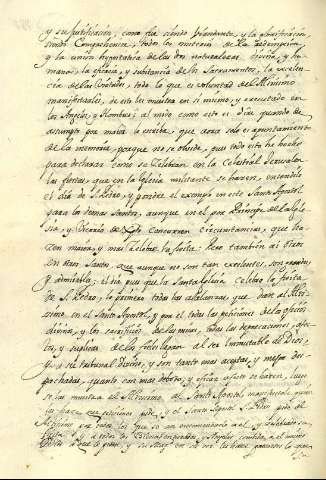 y su justificación, como fue siendo viandante, y la glorificación
siendo Comprehensor, todos los misterios de la redempcion,
y la union hypostatica de las dos naturalezas divina, y hu-
mana, la eficacia, y substancia de los Sacramentos, la excelen-
cia de las Virtudes, todo lo que es voluntad del Altissimo
manifestarles, de esto les muestra en si mismo, y executado en
los Angeles y Hombres; al modo como esto es dias quando de
assumpto por mayor lo escriba, que aora solo es apuntamiento
de la memoria, porque no se olvide, que todo esto he dicho
para declarar como se celebran en la Celestial Jerusalem
las fiestas, que en la Iglesia militante se hazen, viniendo
el dia de S. Pedro, y pondré el exemplo en este Santo Apostol
para los demas Santos, aunque en el por Principe de la Igle-
sia, y Vicario de Xpto concurren circunstancias, que ha-
zen mayor, y mas celebre la fiesta: Pero tambien al
otros Santos, que aunque no son tan excelentes, son grandes
y admirable; el dia pues que la Santa Iglesia celebra la fiesta
de S. Pedro, lo primero todas las alabanzas, que dan al Altis-
simo, en el Santo Apostol, y por el todas las peticiones de los oficios
divinos, y los sacrificios de las misas, todas las deprecaciones, afec-
tos, y suplicas de los fieles llegan al ser Immutable de Dios,
y a su tribunal Divino, y son tanto mas aceptas, y mejor des-
pachadas, quanto con mas debito, y eficaz afecto se hazen, luego
se las muestra el Altissimo al Santo Apostol, manifestando quien
la haze, que peticiones pide, y el Santo Apostol S. Pedro pide al
Altissimo por todos los que se an encomendado a el, y
a todos los Bienaventurados, y Angeles